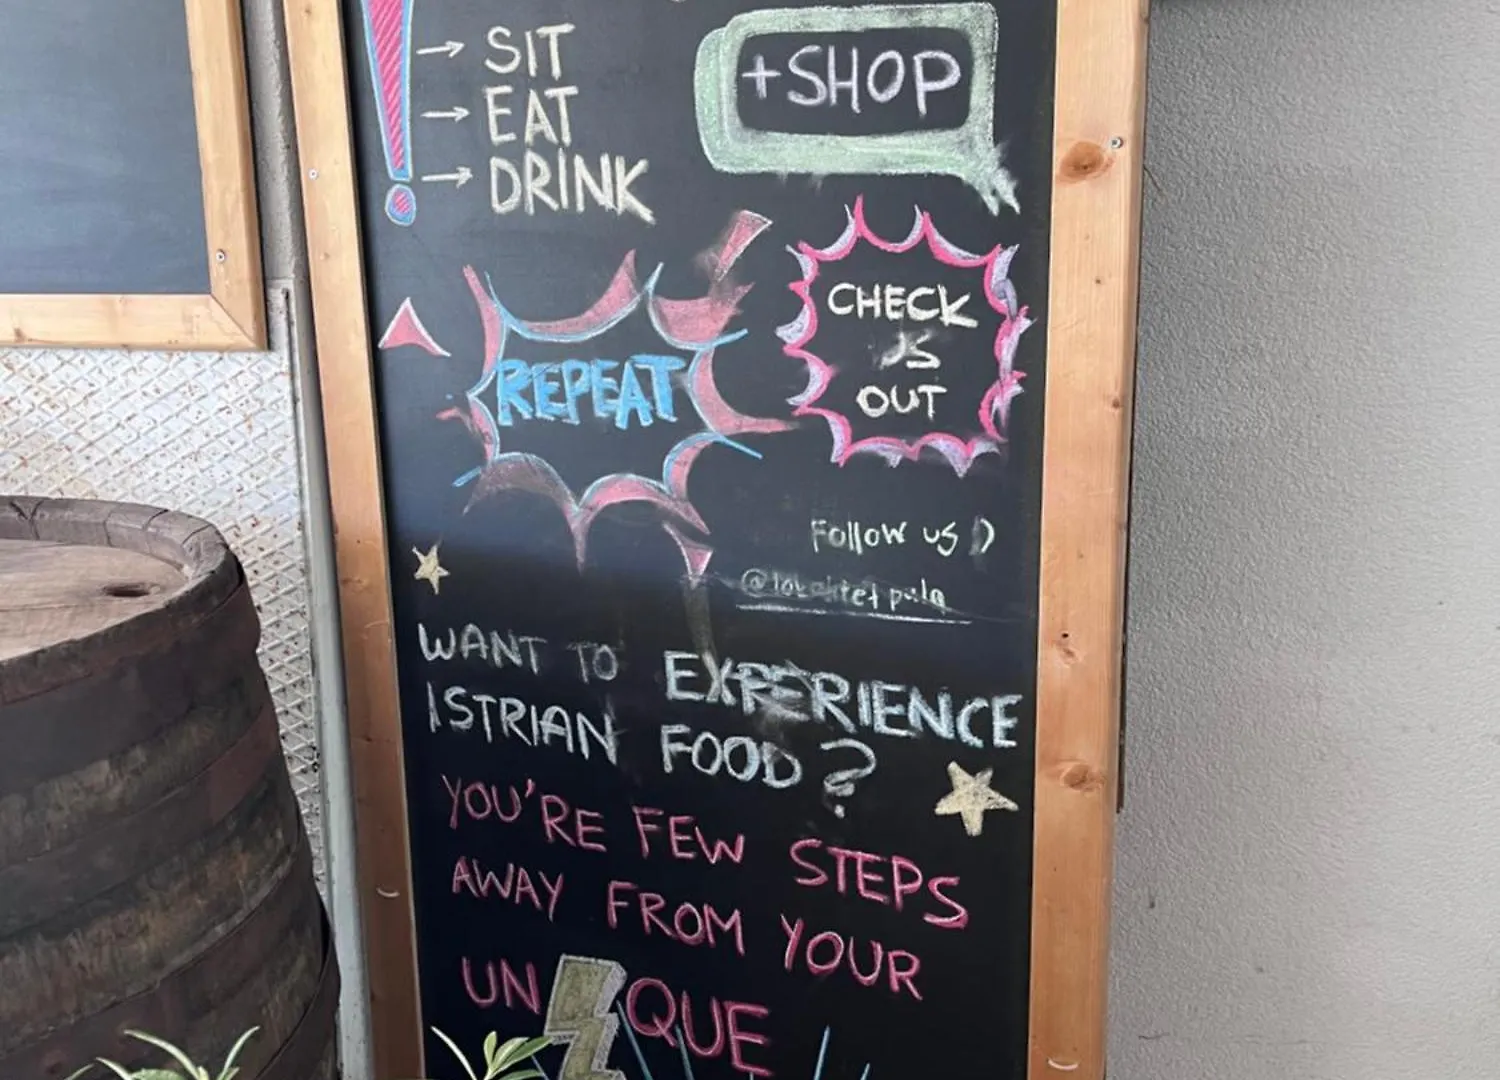 SIT
EAT
DRINK
+SHOP
REPEAT
CHECK
US
OUT
Follow us :)
WANT TO EXPERIENCE
ISTRIAN FOOD?
YOU'RE FEW STEPS
AWAY FROM YOUR
UNIQUE